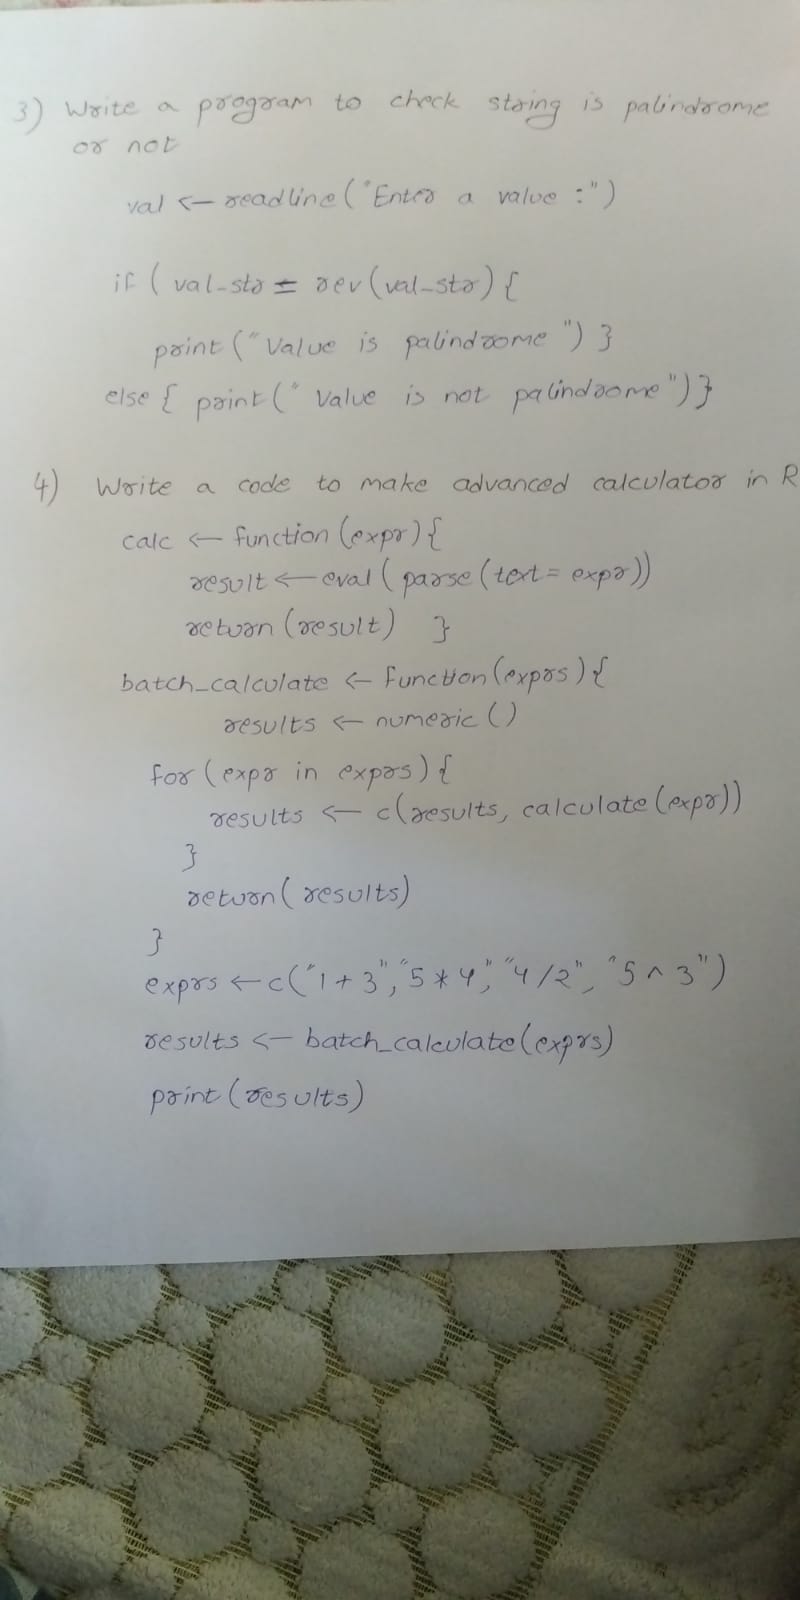 3) Write a program to check string is palindrome
or not
val <- readline("Enter a value :")
if ( val-str = rev(val-str) {
print ("Value is palindrome ") }
else { print (" Value is not palindrome")}
4) Write a code to make advanced calculator in R
calc <- function (expr) {
result <- eval ( parse (text = expr))
return (result) }
batch_calculate <- function (exprs) {
results <- numeric ()
for (expr in exprs) {
results <- c(results, calculate (expr))
}
return ( results)
}
exprs <- c("1 + 3", "5 * 4", "4 / 2", "5 ^ 3")
results <- batch_calculate (exprs)
print (results)